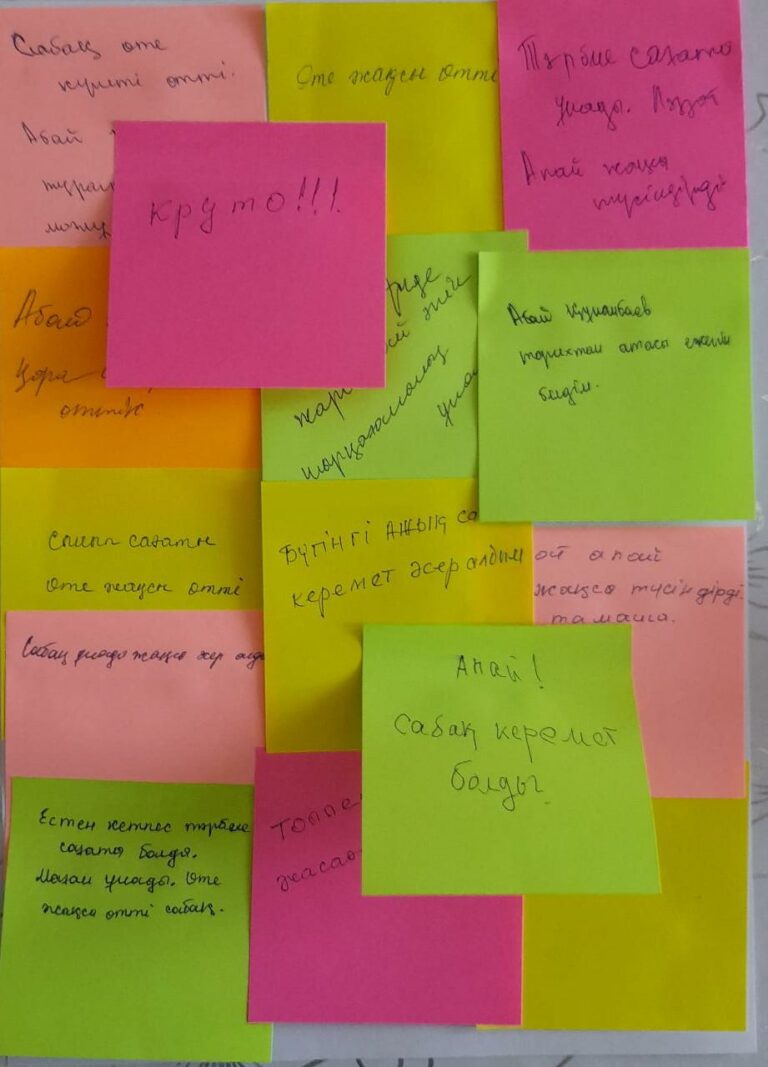 Сабақ өте
күшті өтті.
Абай
Өте жақсы өтті
Тәрбие сағаты
ұнады. Ләззат
Апай жақсы
түсіндірді
круто!!!
Абай
қара
өттік
жар
шарқатамның
Абай Құнанбаев
тарихтан атасы екенін
білдім.
сынып сағаты
өте жақсы өтті
Бүгінгі ашық са
керемет әсер алдым
ой апай
жақсы түсіндірді.
тамаша.
Сабақ ұнады жақсы әсер алды
Апай!
Сабақ керемет
болды.
Естен кетпес тәрбие
сағаты болды.
Маған ұнады. Өте
жақсы өтті сабақ.
Топпен
жасао